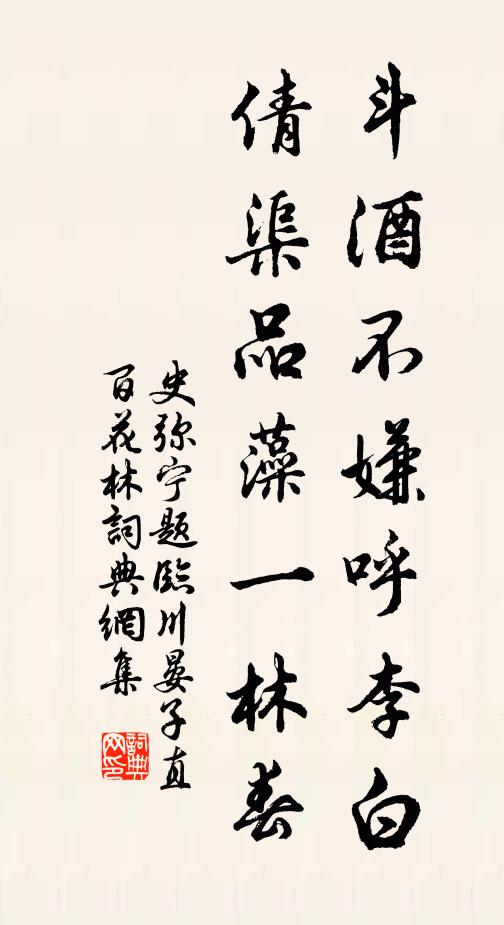 斗酒不嫌呼李白
倩渠品藻一林春
史弥宁题臨川晏子直
百花林詞典網集
詞典网印